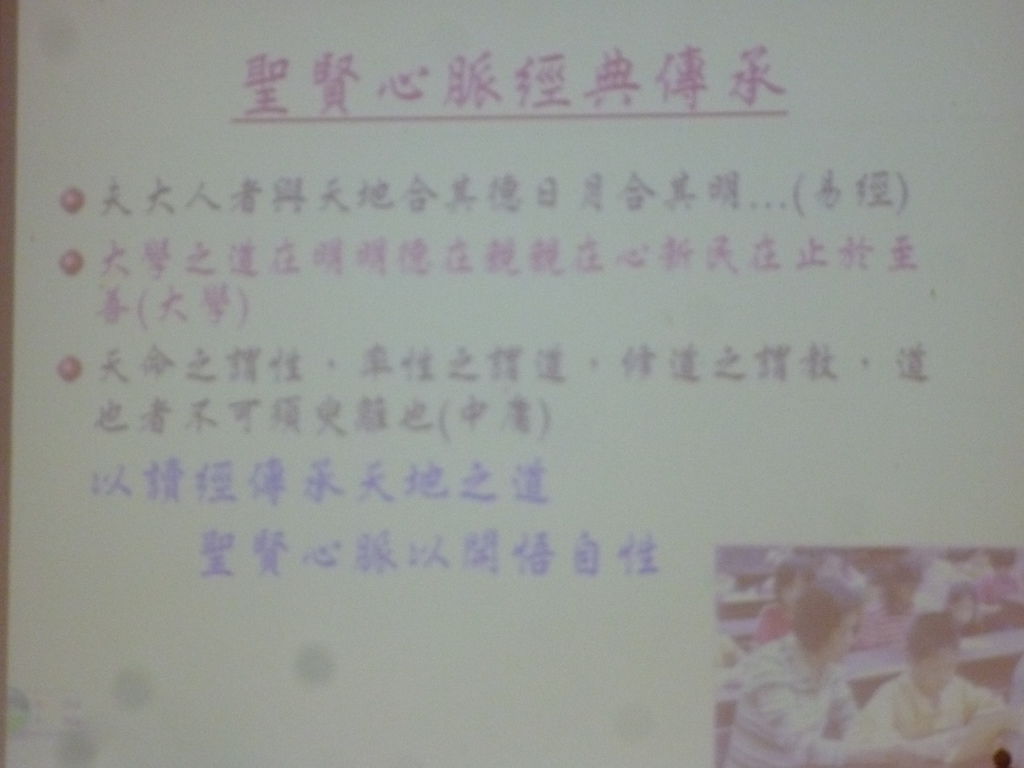 聖賢心脈經典傳承
夫大人者與天地合其德日月合其明...(易經)
大學之道在明明德在親親在心新民在止於至
善(大學)
天命之謂性，率性之謂道，修道之謂教，道
也者不可須臾離也(中庸)
以讀經傳承天地之道
聖賢心脈以開悟自性